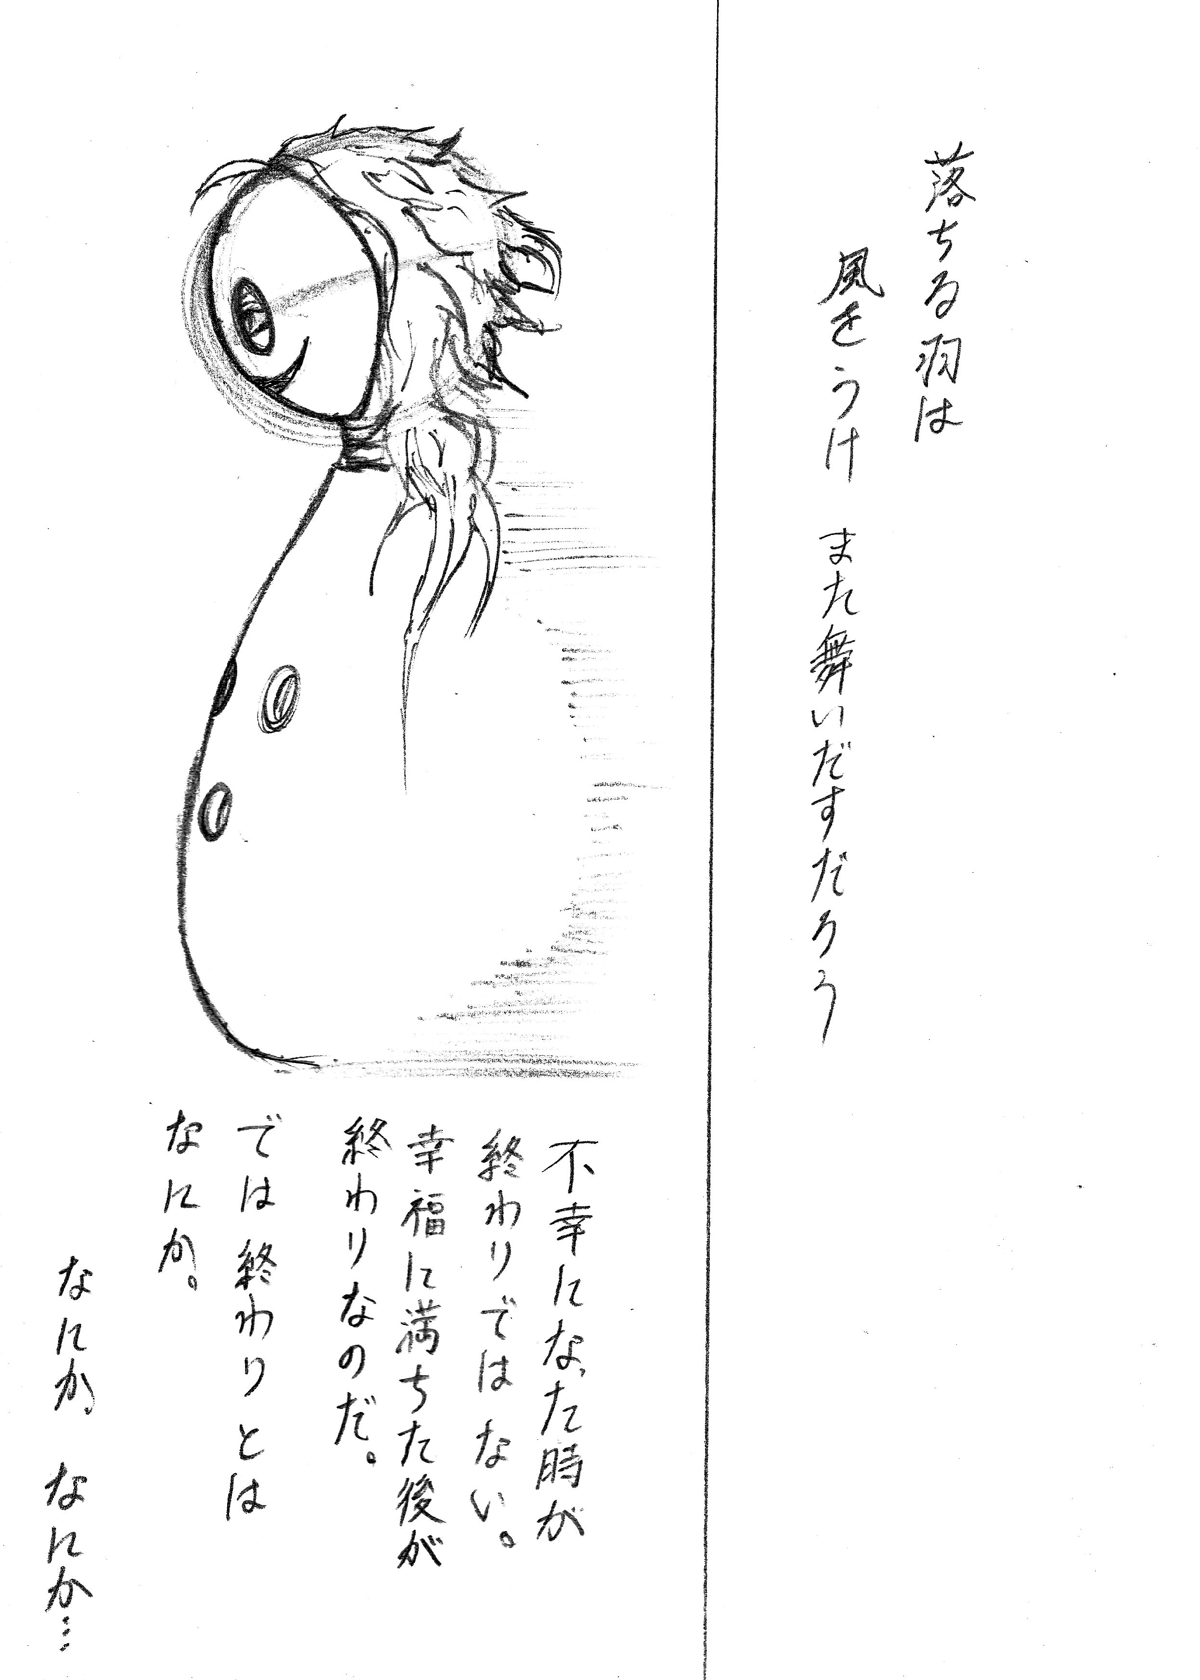 落ちる羽は
風をうけ また舞いだすだろう
不幸になった時が
終わりではない。
幸福に満ちた後が
終わりなのだ。
では終わりとは
なにか。
なにか。なにか…